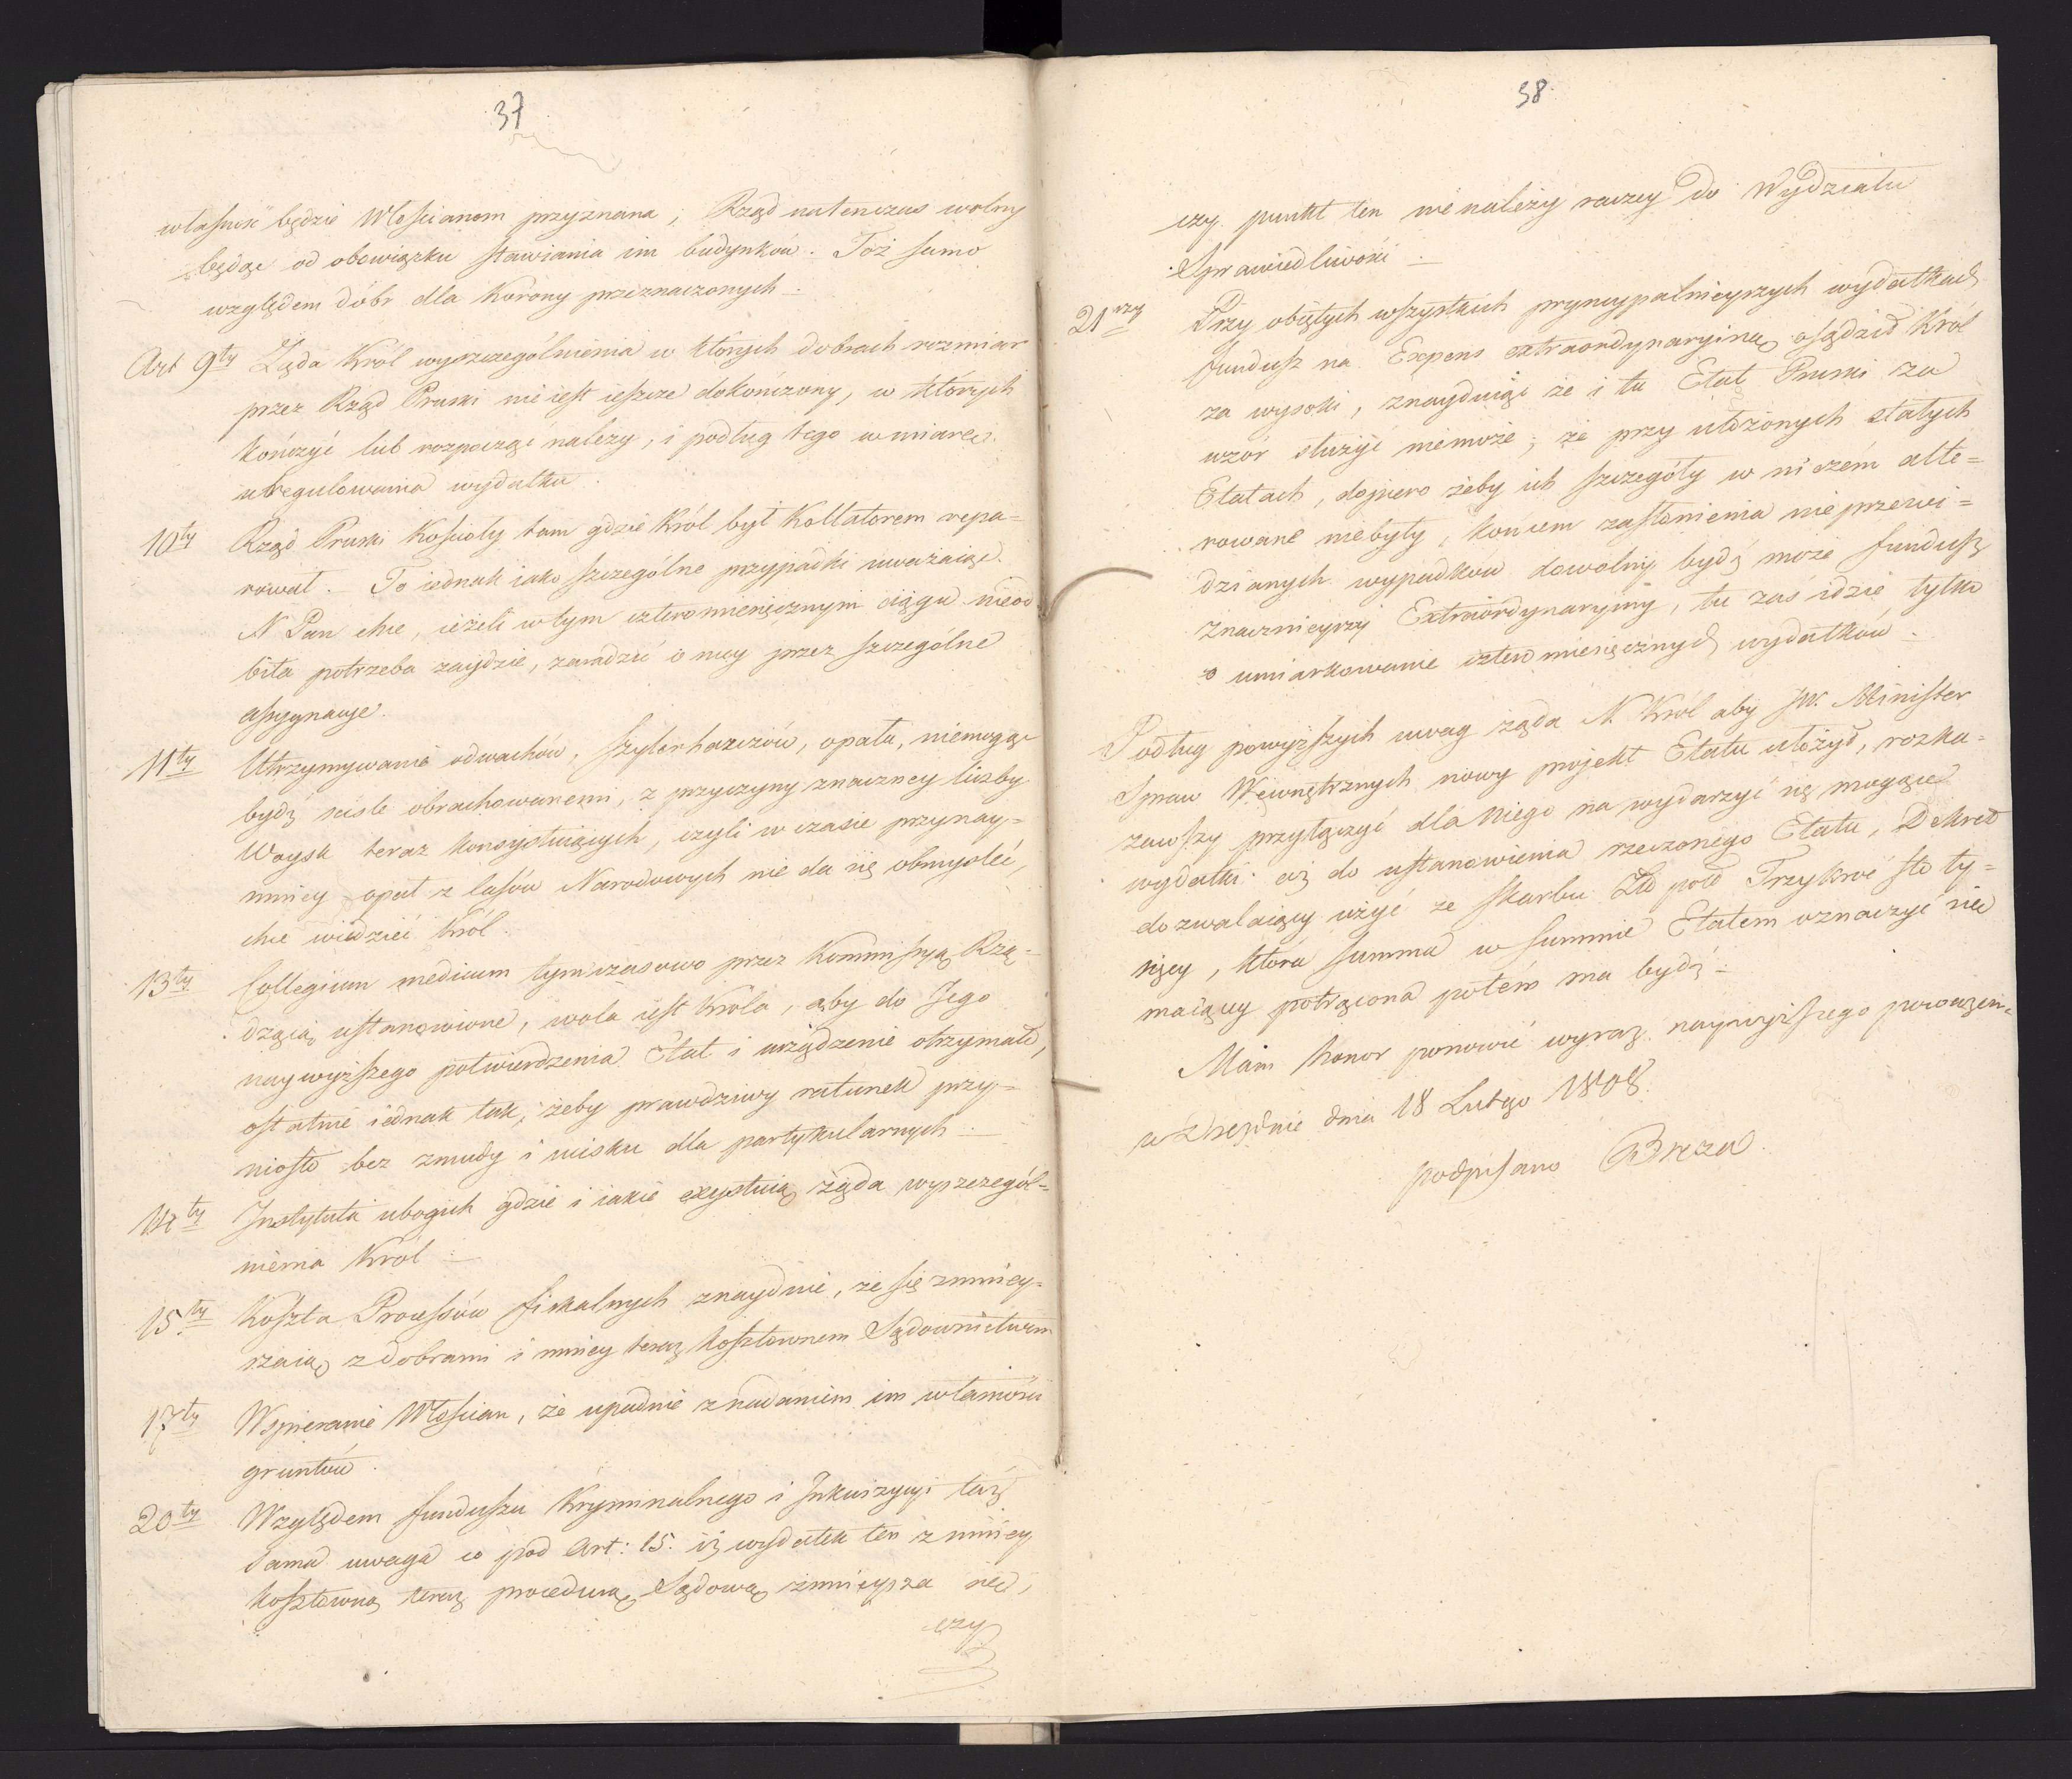 37
własność będzie Włościanom przyznana, Rząd natenczas wolny
będąc od obowiązku stawiania im budynków. Toż samo
względem dóbr dla Korony przeznaczonych.
Art 9ty Żąda Król wyszczególnienia w których dobrach rozmiar
przez Rząd Pruski nie iest ieszcze dokończony, w których
kończyć lub rozpocząć należy, i podług tego w miarę
uregulowania wydatku.
10ty Rząd Pruski Kościoły tam gdzie Król był Kollatorem repa=
rował. To iednak iako szczególne przypadki uważaiąc
N Pan chce, ieżeli w tym czteromiesięcznym ciągu nieod
bita potrzeba zaydzie, zaradzić oney przez szczególne
assygnacye.
11ty Utrzymywanie odwachów, szylerhauzów, opału, niemogąc
bydź ściśle obrachowanemi, z przyczyny znaczney liczby
Woysk teraz konsystuiących, czyli w czasie przynay=
mniey opał z lasów Narodowych nie da się obmyśleć,
chce wiedzieć Król.
13ty Collegium medicum tymczasowo przez Kommissyą Rzą=
dzącą ustanowione, wola iest Króla, aby do Jego
naywyższego potwierdzenia Etat i urządzenie otrzymało,
ostatnie iednak tak, żeby prawdziwy ratunek przy=
niosło bez zmudy i ucisku dla partykularnych.
14ty Instytuta ubogich gdzie i iakie exystuią żąda wyszczegól=
nienia Król.
15ty Koszta Processów fiskalnych znayduie, że się zmniey=
szaią z dobrami i mniey teraz kosztownem Sądownictwem
17ty Wspieranie Włościan, że upadnie z nadaniem im własności
gruntów.
20ty Względem funduszu Kryminalnego i Inkwizycyi taż
sama uwaga co pod Art: 15. iż wydatek ten z mniey
kosztowną teraz procedurą Sądową zmnieysza się,
czy
38
czy punkt ten nie należy raczey do Wydziału
Sprawiedliwości.
21wszy Przy obiętych wszystkich pryncypalnieyszych wydatkach
fundusz na Expens extraordynaryiną osądził Król
za wysoki, znayduiąc że i tu Etat Pruski za
wzór służyć niemoże; że przy ułożonych stałych
Etatach, dopiero żeby ich szczegóły w niczém alte=
rowane niebyły, końcem zasłonienia nieprzewi=
dzianych wypadków dowolny bydź może fundusz
znacznieyszy Extraordynaryiny, tu zaś idzie tylko
o umiarkowanie czteromiesięcznych wydatków.
Podług powyższych uwag żąda N. Król aby JW. Minister
Spraw Wewnętrznych nowy projekt Etatu ułożył, rozka=
zawszy przyłączyć dla Niego na wydarzyć się mogące
wydatki aż do ustanowienia rzeczonego Etatu, Dekret
dozwalaiący użyć ze Skarbu Złł pols Trzykroć sto ty=
sięcy, która summa w summie Etatem oznaczyć się
maiącey potrącona potém ma bydź.
Mam honor ponowić wyraz naywyższego poważenia
w Dreznie dnia 18 Lutego 1808.
podpisano Breza